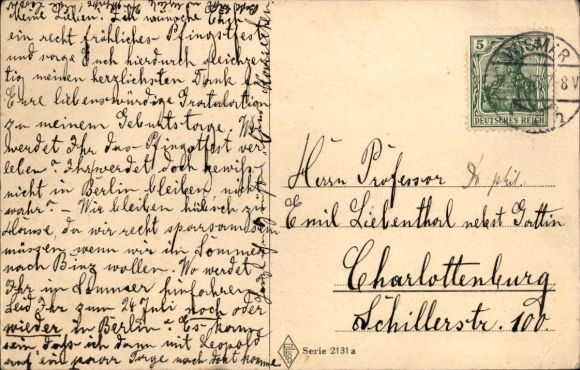 Meine Lieben. Ich wünsche Euch
ein recht fröhliches Pfingstfest
und sage Euch hierdurch gleichzei-
tig meinen herzlichsten Dank für
Eure liebenswürdige Gratulation
zu meinem Geburtstage. Wo
werdet Ihr das Pfingstfest ver-
leben? Ihr werdet doch gewiss
nicht in Berlin bleiben nicht
wahr? – Wir bleiben hübsch zu
Hause da wir recht sparsam sein
müssen, wenn wir im Sommer
nach Binz wollen. Wo werdet
Ihr im Sommer hinfahren?
Seid Ihr zum 24 Juli noch oder
wieder in Berlin? Es kann
sein, daß ich dann mit Leopold
auf ein paar Tage nach dort komme.
5
DEUTSCHES REICH
WISMAR
8V
Herrn Professor Dr phil.
Emil Liebenthal nebst Gattin
Charlottenburg
Schillerstr. 100.
Serie 2131a